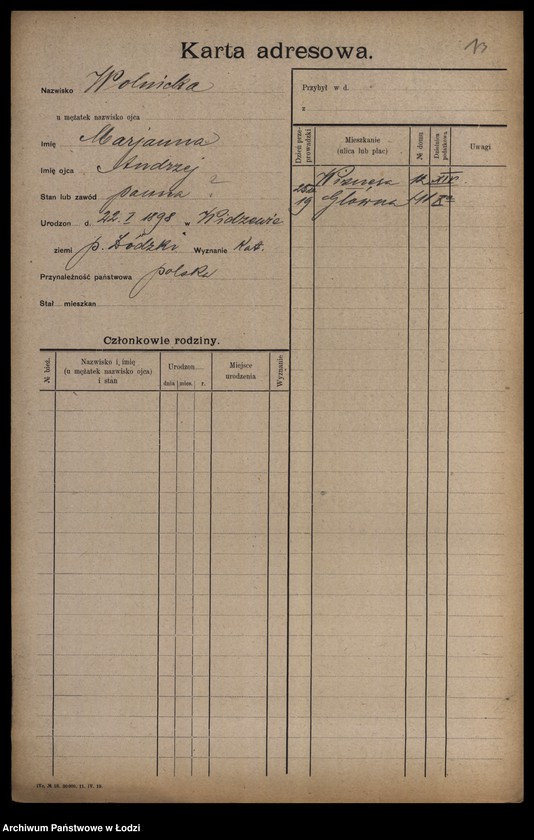 Karta adresowa.
13
Nazwisko Wolnicka
u mężatek nazwisko ojca
Imię Marjanna
Imię ojca Andrzej
Stan lub zawód panna
Urodzon d. 22. I 1898 w Widzewie
ziemi p. Łódzki Wyznanie Kat.
Przynależność państwowa polska
Stał mieszkan
Przybył w d.
z
Dzień przeprowadzki
Mieszkanie
(ulica lub plac)
№ domu
Dzielnica podatkowa
Uwagi
XIV
19 Główna
Członkowie rodziny.
№ bież.
Nazwisko i imię
(u mężatek nazwisko ojca)
i stan
Urodzon
dnia mies. r.
Miejsce
urodzenia
Wyznanie
Archiwum Państwowe w Łodzi